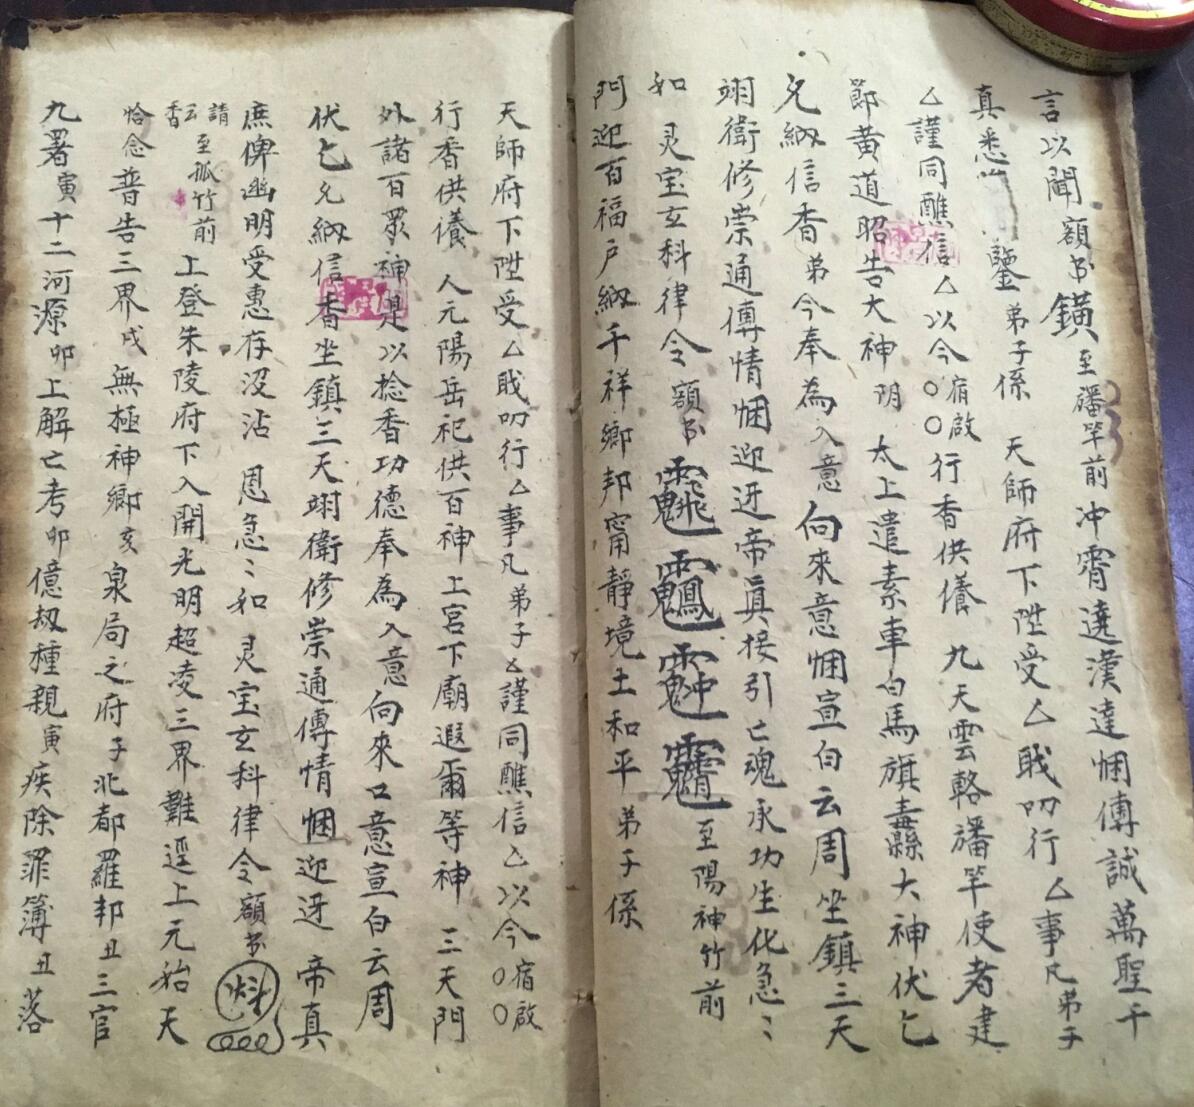 言以聞額書鐄至旛竿前冲霄達漢達悃傳誠萬聖千
真悉鑒弟子係 天師府下陞受厶戝叨行厶事凡弟子
厶謹同醮信厶以今宿啟〇〇行香供養 九天雲輅旛竿使者建
節黄道昭告大神 阴 太上遣素車白馬旗纛縣大神伏乞
允納信香弟今奉為入意向來意悃宣白云周坐鎮三天
翊衛修崇通傳情悃迎迓帝真接引亡魂承功生化急〻
如 灵宝玄科律令額書 至陽神竹前
門迎百福戶納千祥鄉邦甯靜境土和平弟子係
天師府下陞受厶戝叨行厶事凡弟子厶謹同醮信厶以今宿啟〇〇
行香供養 人元陽岳祀供百神上宮下廟遐爾等神 三天門
外諸百眾神是以捻香功德奉為入意向來口意宣白云周
伏乞允納信香坐鎮三天翊衛修崇通傳情悃迎迓 帝真
庶俾幽明受惠存沒沾 恩急〻如 灵宝玄科律令額書
請至孤竹前 香云 上登朱陵府下入開光明超凌三界難逕上元始天
恰念普告三界戍無極神鄉亥泉局之府子北都羅邦丑三官
九署寅十二河源卯上解亡考卯億劫種親寅疾除罪簿丑落